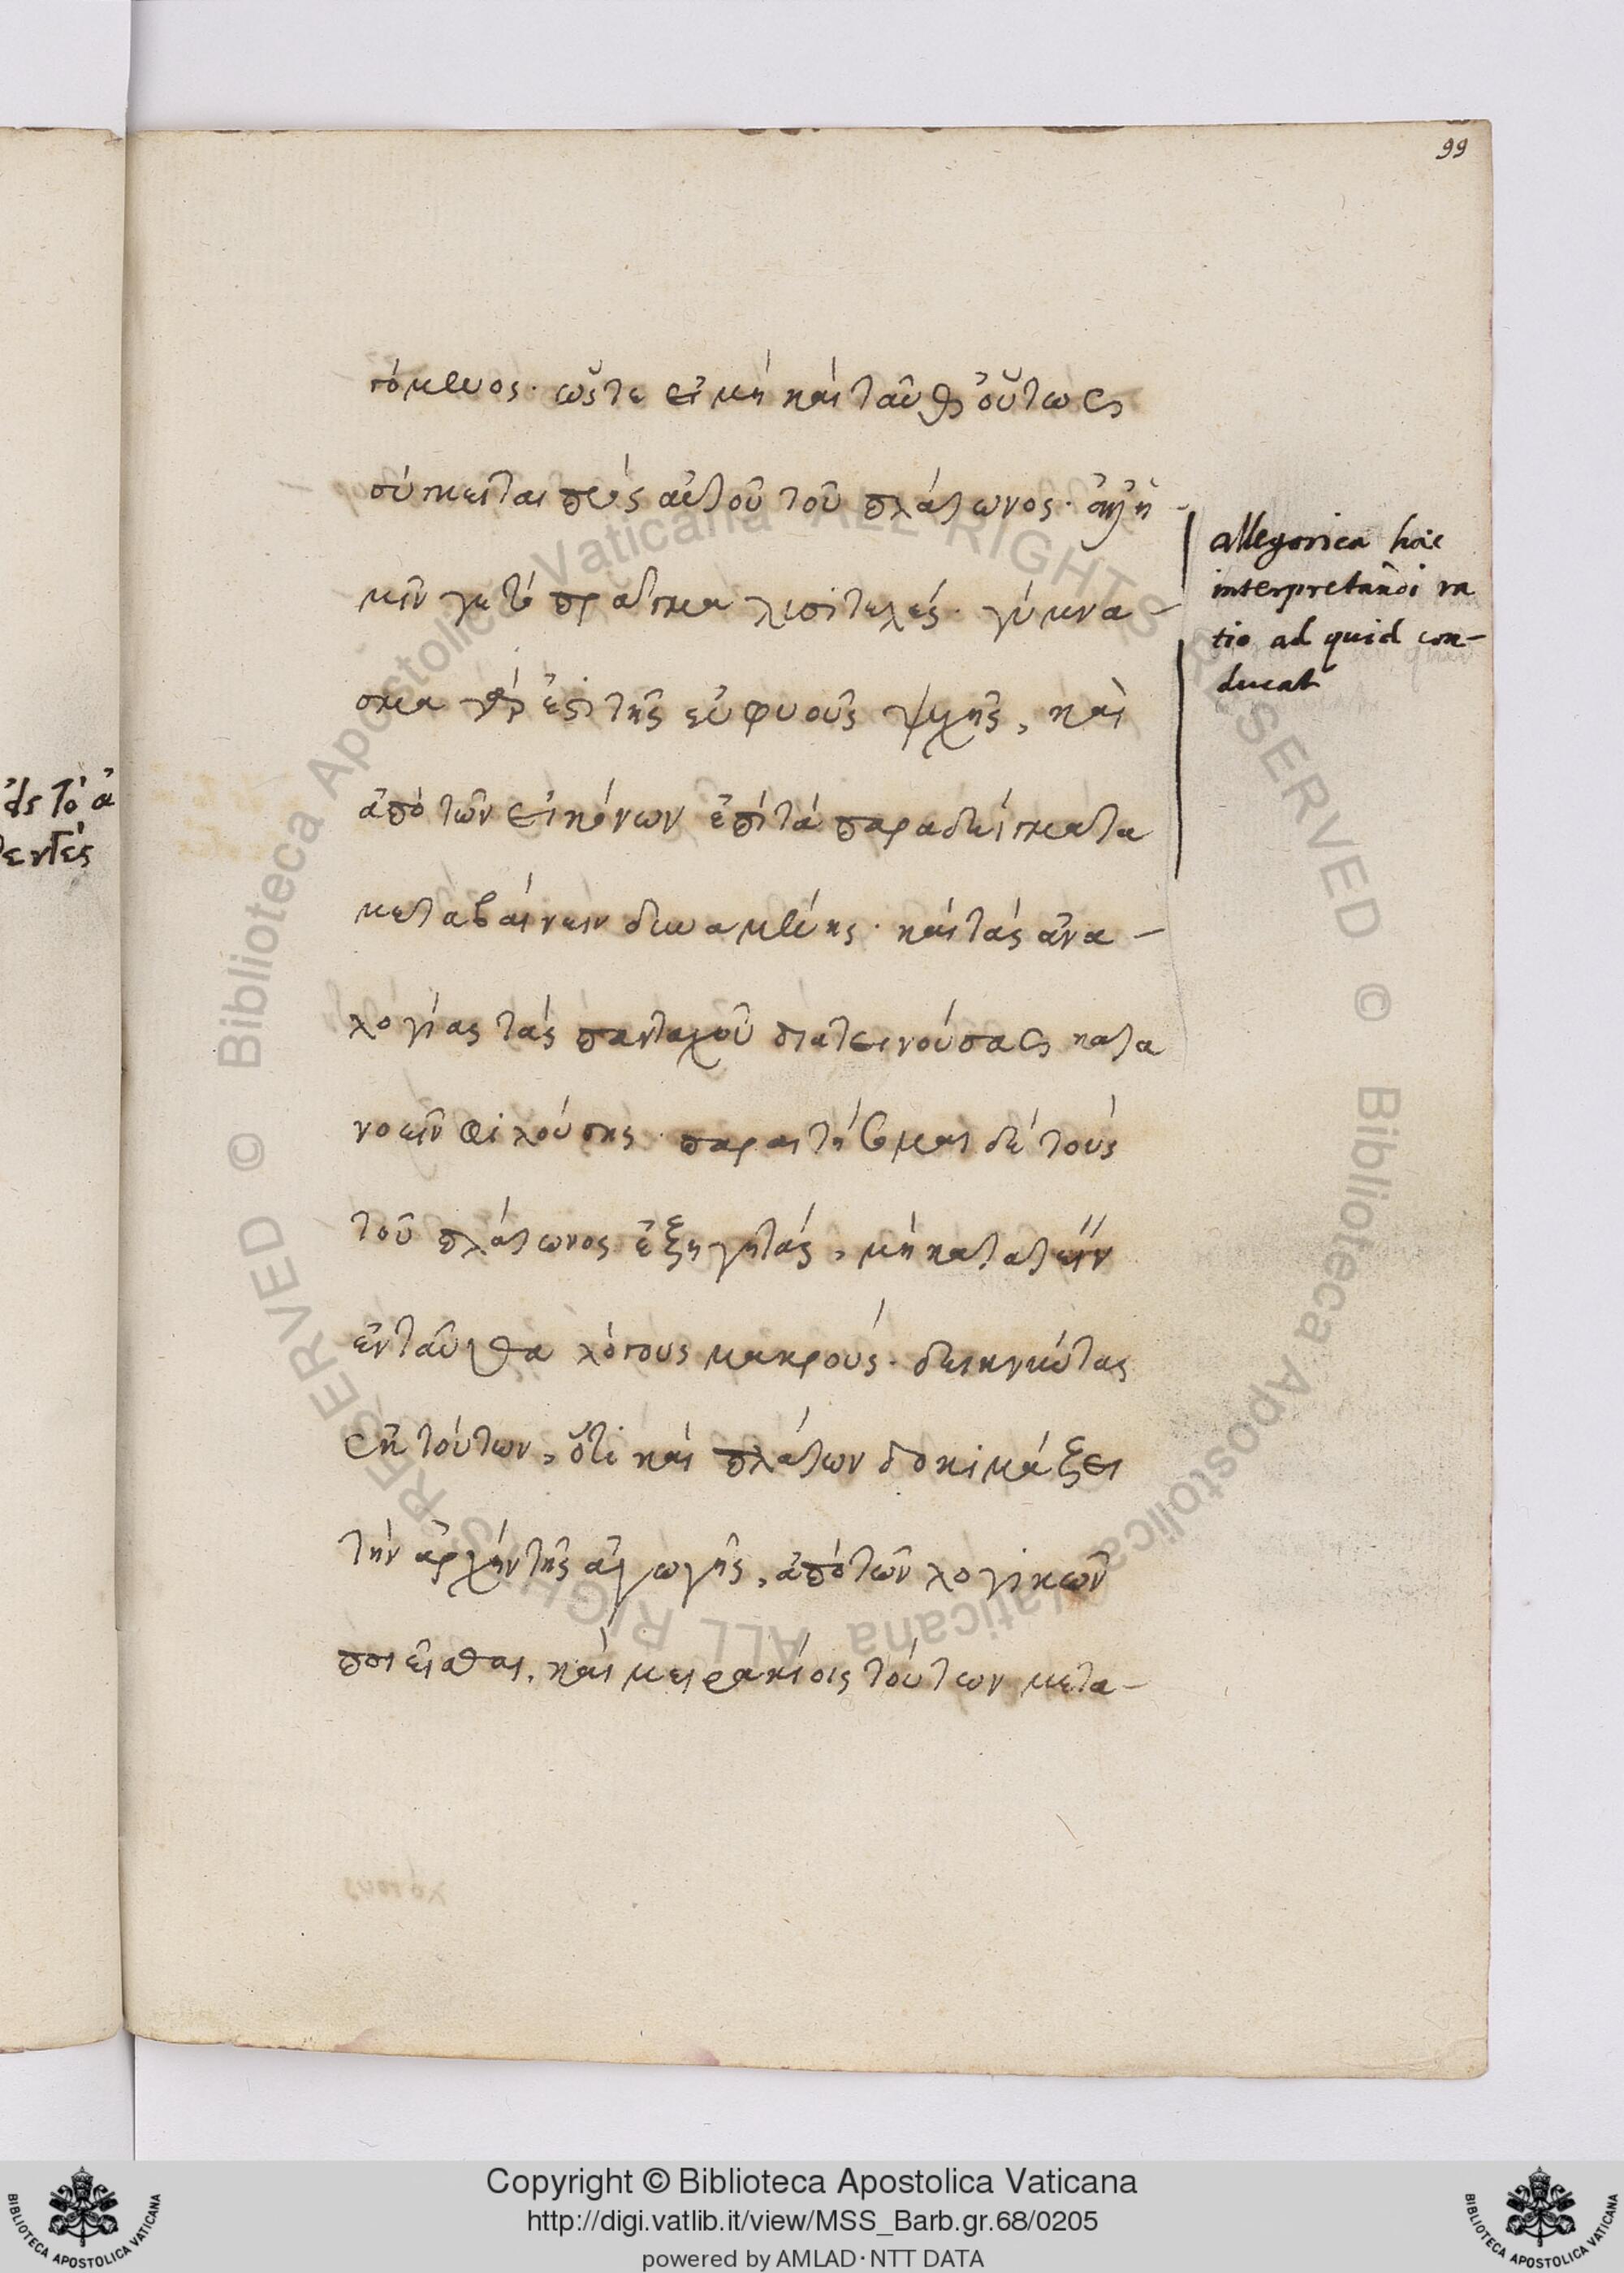 99
γόμενος· ὥστε εἰ μὴ καὶ ταῦθ' οὕτως
σύγκειται πρὸς αὐτοῦ τοῦ πλάτωνος· ἀλλ' ἡ-
μῖν γε τὸ πρᾶγμα λυσιτελές· γύμνα-
σμα γάρ ἐστι τῆς εὐφυοῦς ψυχῆς, καὶ
ἀπὸ τῶν εἰκόνων ἐπὶ τὰ παραδείγματα
μεταβαίνειν δυναμένης· καὶ τὰς ἀνα-
λογίας τὰς πανταχοῦ διατεινούσας κατα
νοεῖν φιλούσης· παραιτήσομαι δὲ τοὺς
τοῦ πλάτωνος ἐξηγητάς, μὴ κατατείνειν
ἐνταῦθα λόγους μακρούς· δεικνύντας
ἐκ τούτων, ὅτι καὶ πλάτων δοκιμάζει
τὴν ἀρχὴν τῆς ἀγωγῆς, ἀπὸ τῶν λογικῶν
ποιεῖσθαι, καὶ μειρακίοις τούτων μετα-
allegorica haec
interpretandi ra
tio ad quid con-
ducat
τὸ ἀ
Copyright © Biblioteca Apostolica Vaticana
http://digi.vatlib.it/view/MSS_Barb.gr.68/0205
powered by AMLAD·NTT DATA
BIBLIOTECA APOSTOLICA VATICANA
BIBLIOTECA APOSTOLICA VATICANA
© Biblioteca Apostolica Vaticana ALL RIGHTS RESERVED
© Biblioteca Apostolica Vaticana ALL RIGHTS RESERVED